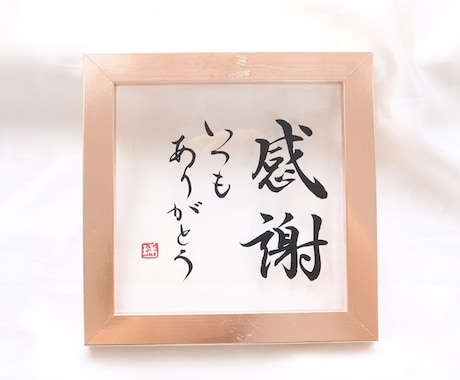 感謝
いつも
ありがとう